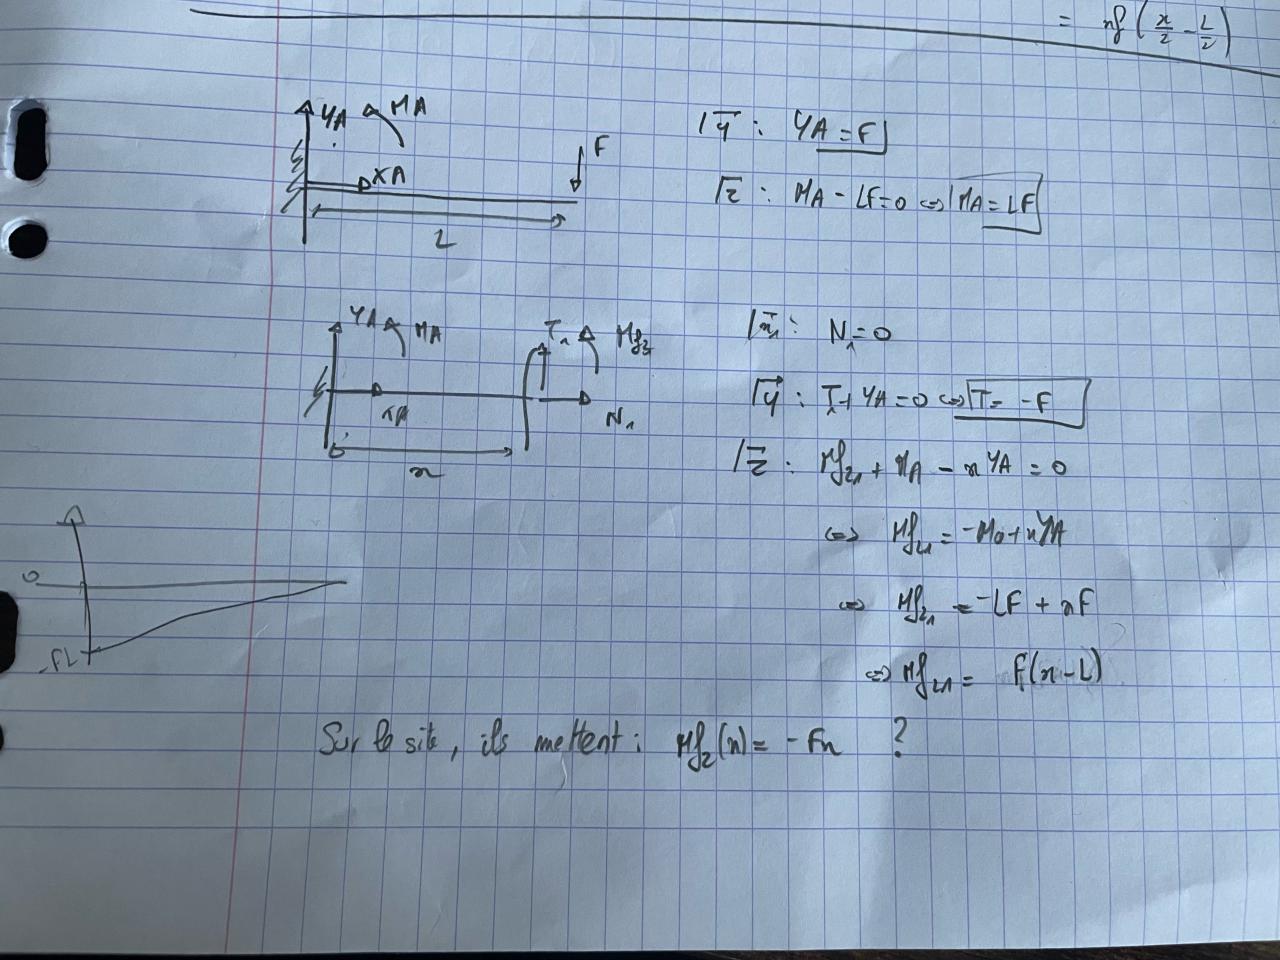 = nf ( x/2 - L/2 )
YA MA
F
XA
L
/y : YA = F
/z : MA - LF = 0 <=> MA = LF
YA MA
T1 Mfz1
XA
N1
x
/x : N1 = 0
/y : T1 + YA = 0 <=> T = -F
/z : Mfz1 + MA - xYA = 0
<=> Mfz1 = -MA + xYA
<=> Mfz1 = -LF + xF
<=> Mfz1 = F(x-L)
0
-FL
Sur le site, ils mettent : Mfz(x) = -Fx ?